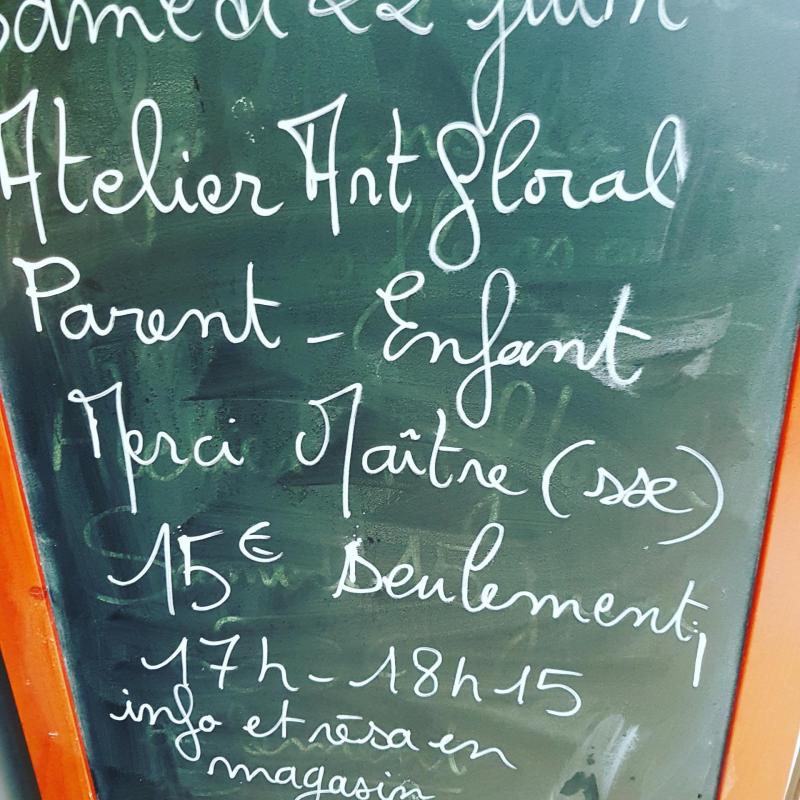 Samedi 22 juin
Atelier Art floral
Parent - Enfant
Merci Maître (sse)
15€ seulement;
17h - 18h15
info et résa en
magasin